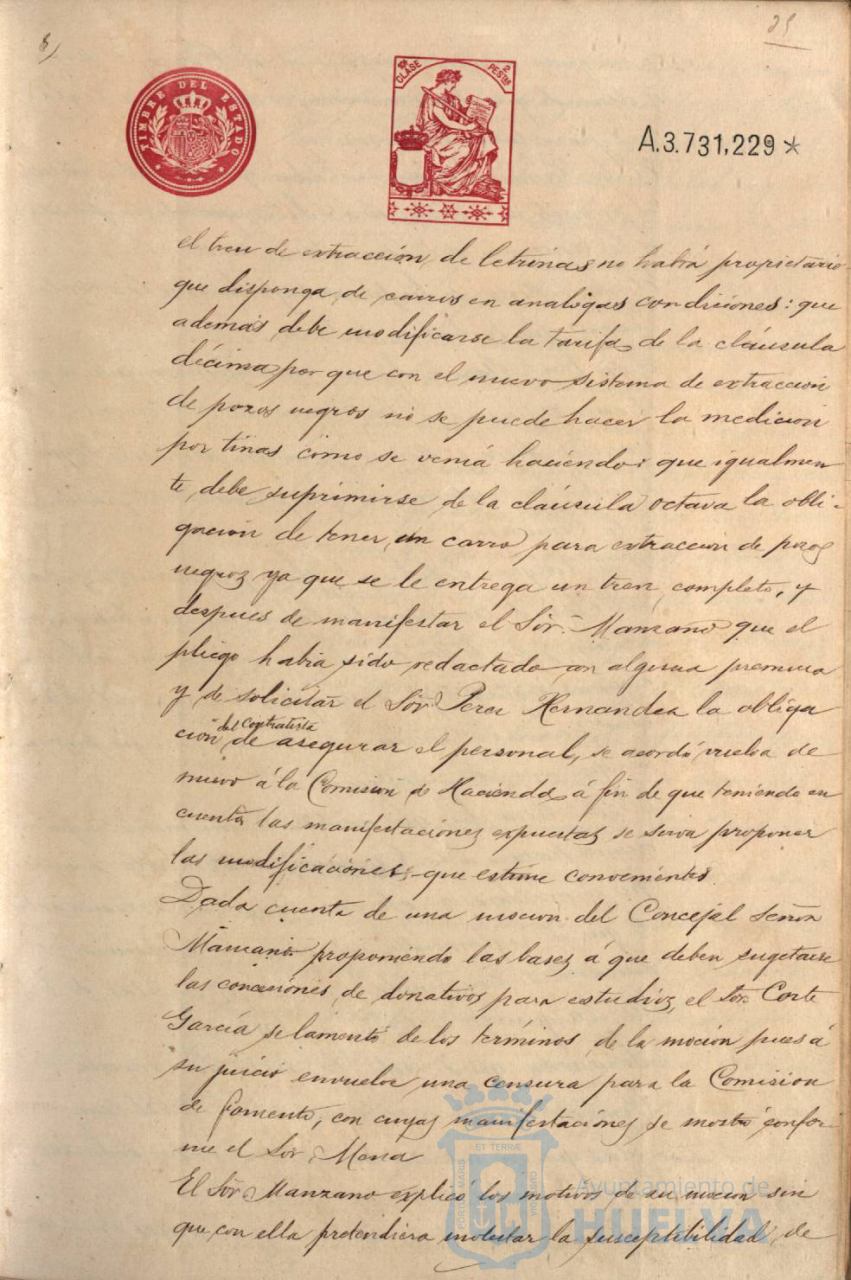 25
TIMBRE DEL ESTADO
10ª CLASE
2 PESTAS
A.3.731,229*
el tren de extracción de letrinas no habrá propietario
que disponga de carros en analogas condiciones: que
además debe modificarse la tarifa de la cláusula
décima por que con el nuevo sistema de extraccion
de pozos negros no se puede hacer la medicion
por tinas como se venía haciendo: que igualmen
te debe suprimirse de la cláusula octava la obli-
gacion de tener un carro para extraccion de pozos
negros ya que se le entrega un tren completo, y
despues de manifestar el Sör. Manzano que el
pliego habia sido redactado con alguna premura
y de solicitar el Sör Perez Hernandez la obliga
cion del contratista de asegurar el personal, se acordó vuelva de
nuevo á la Comision de Hacienda á fin de que teniendo en
cuenta las manifestaciones expuestas se sirva proponer
las modificaciones que estime convenientes.
Dada cuenta de una mocion del Concejal Señor
Manzano proponiendo las bases á que deben sugetarse
las concesiones de donativos para estudios, el Sör Corte
García se lamentó de los términos de la moción pues á
su juicio envuelve una censura para la Comision
de fomento, con cuyas manifestaciones se mostró confor-
me el Sör Mena
El Sör Manzano explicó los motivos de su mocion sin
que con ella pretendiera molestar la susceptibilidad de
Ayuntamiento de
HUELVA